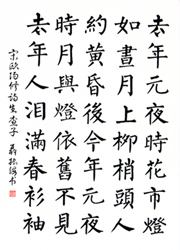 去年元夜時花市燈
如晝月上柳梢頭人
約黃昏後今年元夜
時月與燈依舊不見
去年人泪滿春衫袖
宋欧阳修诗生查子